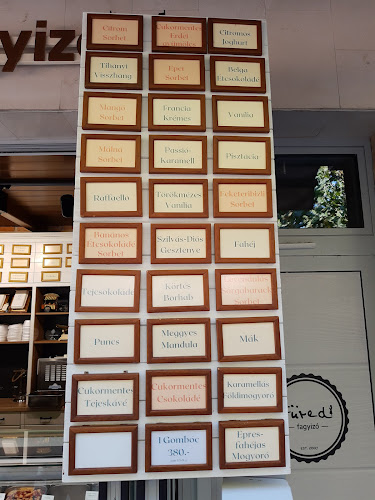 gyizó
Citrom
Sorbet
Cukormentes
Erdei
Gyümölcs
Citromos
Joghurt
Tihanyi
Visszhang
Eper
Sorbet
Belga
Étcsokoládé
Mangó
Sorbet
Francia
Krémes
Vanília
Málna
Sorbet
Passió-
Karamell
Pisztácia
Raffaello
Törökmézes
Vanília
Feketeribizli
Sorbet
Banános
Étcsokoládé
Sorbet
Szilvás-Diós
Gesztenye
Fahéj
Tejcsokoládé
Körtés
Borhab
Sorbet
Puncs
Meggyes
Mandula
Mák
Cukormentes
Tejeskávé
Cukormentes
Csokoládé
Karamellás
Földimogyoró
1 Gombóc
380.-
Epres-
fahéjas
Mogyoró
füredi
fagyizó